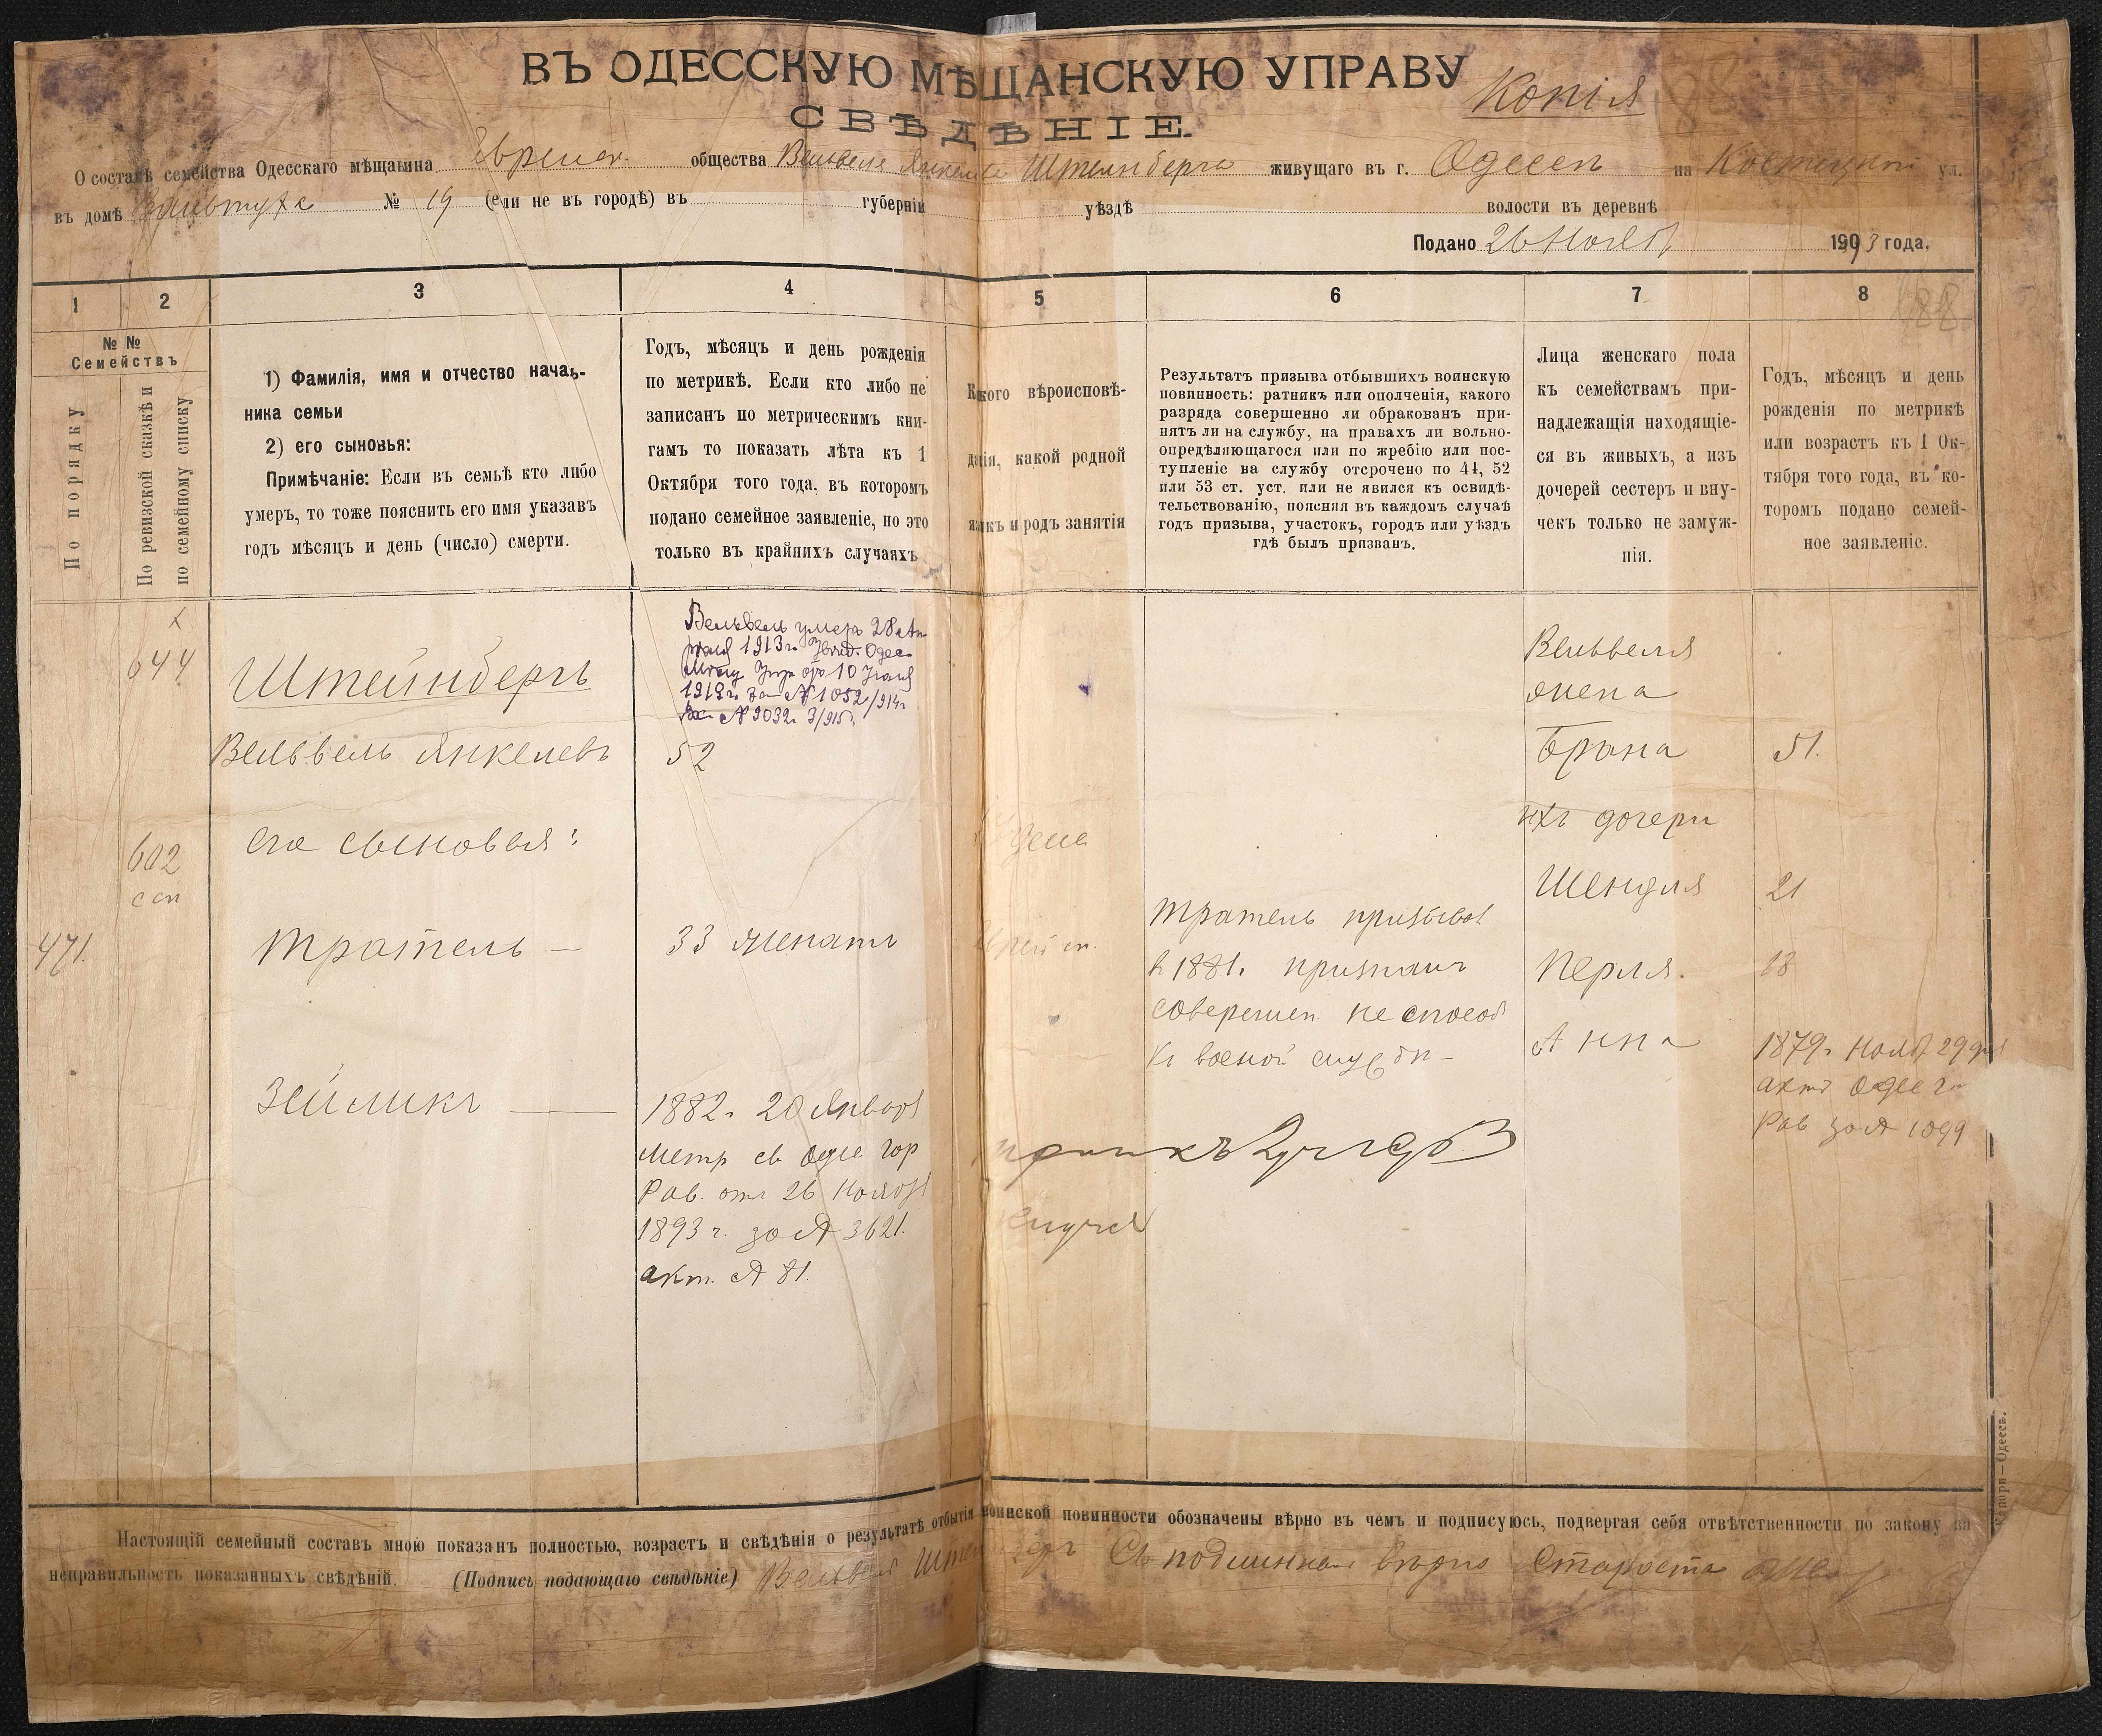 ВЪ ОДЕССКУЮ МѢЩАНСКУЮ УПРАВУ
Копія
СВѢДѢНІЕ.
О составѣ семейства Одесскаго мѣщанина Еврейск. общества Вельвеля Янкелева Штейнберга живущаго въ г. Одессѣ на ул.
въ домѣ № 19 (если не въ городѣ) въ губерніи уѣздѣ волости въ деревнѣ
Подано 26 Нояб 1893 года.
1 2 3 4 5 6 7 8
188
№ №
Семействъ
По порядку
По ревизской сказкѣ и
по семейному списку
1) Фамилія, имя и отчество началь-
ника семьи
2) его сыновья:
Примѣчаніе: Если въ семьѣ кто либо
умеръ, то тоже пояснить его имя указавъ
годъ мѣсяцъ и день (число) смерти.
Годъ, мѣсяцъ и день рожденія
по метрикѣ. Если кто либо не
записанъ по метрическимъ кни-
гамъ то показать лѣта къ 1
Октября того года, въ которомъ
подано семейное заявленіе, но это
только въ крайнихъ случаяхъ
Какого вѣроисповѣ-
данія, какой родной
языкъ и родъ занятія
Результатъ призыва отбывшихъ воинскую
повинность: ратникъ или ополченія, какого
разряда совершенно ли обракованъ при-
нятъ ли на службу, на правахъ ли вольно-
опредѣляющагося или по жребію или пос-
тупленіе на службу отсрочено по 44, 52
или 53 ст. уст. или не явился къ освидѣ-
тельствованію, поясняя въ каждомъ случаѣ
годъ призыва, участокъ, городъ или уѣздъ
гдѣ былъ призванъ.
Лица женскаго пола
къ семействамъ при-
надлежащія находящіе-
ся въ живыхъ, а изъ
дочерей сестеръ и вну-
чекъ только не замуж-
нія.
Годъ, мѣсяцъ и день
рожденія по метрикѣ
или возрастъ къ 1 Ок-
тября того года, въ ко-
торомъ подано семей-
ное заявленіе.
644
Штейнбергъ
Вельвель умеръ 28 Ап
рѣля 1913г. Увѣд. Одес.
Мѣщ Упр отъ 10 Іюня
1919г. за № 1052/914г
Вх № 9032. 3/915г.
Вельвель Янкелевъ
52
Вельвеля
жена
Брана
51.
602
ссп
его сыновья:
Іудей
ихъ дочери
Шендля
21
471.
Тратель —
33 женатъ
Еврейск.
Тратель призывал
в 1881. признанъ
совершен. не способ
къ военой службѣ —
Перля.
18
Анна
1879г. Нояб 29 дня
актъ Одес гор
Рав за № 1099
Зейликъ ——
1882г. 20 Января
Метр св Одес гор
Рав. отъ 26 Ноября
1893 г. за № 3621.
акт. № 81.
Настоящій семейный составъ мною показанъ полностью, возрастъ и свѣдѣнія о результатѣ отбытія воинской повинности обозначены вѣрно въ чемъ и подписуюсь, подвергая себя отвѣтственности по закону за
неправильность показанныхъ свѣдѣній. (Подпись подающаго свѣдѣніе) Вельвель Штейнбергъ Съ подлиннымъ вѣрно Староста